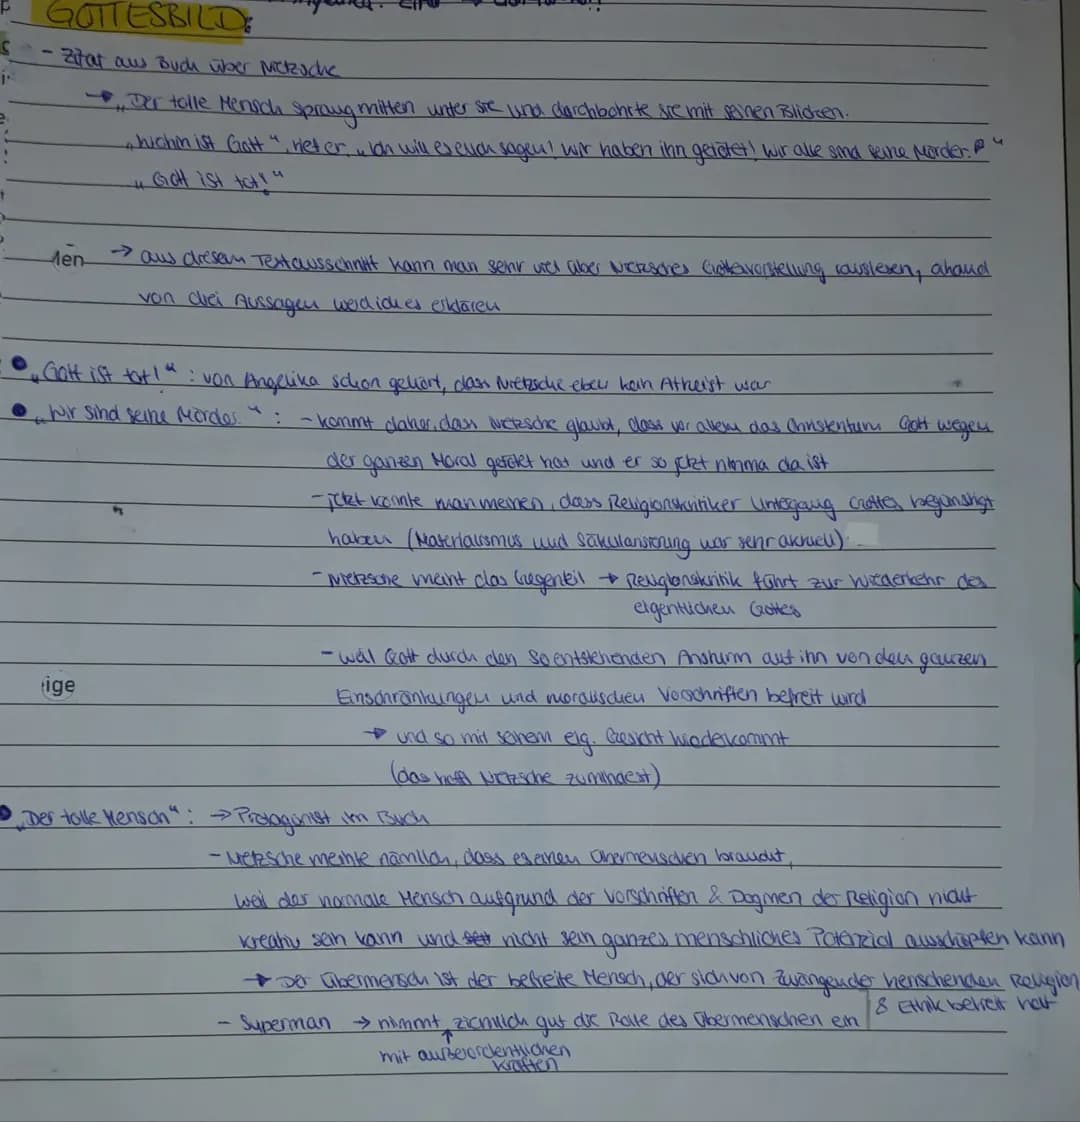 GOTTESBILD:
- Zitat aus Buch über Nietzsche
→ „Der tolle Mensch sprang mitten unter sie und durchbohrte sie mit seinen Blicken.
„Wohin ist Gott", rief er, „Ich will es euch sagen! Wir haben ihn getötet! Wir alle sind seine Mörder."
„Gott ist tot!"
→ aus diesem Textausschnitt kann man sehr viel über Nietzsches Gottesvorstellung rauslesen, ahand
von drei Aussagen werd ich es erklären
• „Gott ist tot!" : von Angelika schon gehört, dass Nietzsche eben kein Atheist war
• „Wir sind seine Mörder." : - kommt daher, dass Nietzsche glaubt, dass vor allem das Christentum Gott wegen
der ganzen Moral getötet hat und er so jetzt nimma da ist
- jetzt könnte man meinen, dass Religionskritiker Untergang Gottes begünstigt
haben (Materialismus und Säkularisierung war sehr aktuell)
- Nietzsche meint das Gegenteil → Religionskritik führt zur Wiederkehr des
eigentlichen Gottes
- weil Gott durch den so entstehenden Ansturm auf ihn von den ganzen
ige
Einschränkungen und moralischen Vorschriften befreit wird
→ und so mit seinem eig. Gesicht wiederkommt
(das hofft Nietzsche zumindest)
• „Der tolle Mensch" : → Protagonist im Buch
- Nietzsche meinte nämlich, dass es einen Übermenschen braucht,
weil der normale Mensch aufgrund der Vorschriften & Dogmen der Religion nicht
kreativ sein kann und nicht sein ganzes menschliches Potenzial ausschöpfen kann
→ Der Übermensch ist der befreite Mensch, der sich von Zwängen der herrschenden Religion
& Ethik befreit hat
- Superman → nimmt ziemlich gut die Rolle des Übermenschen ein
mit außerordentlichen
Kräften